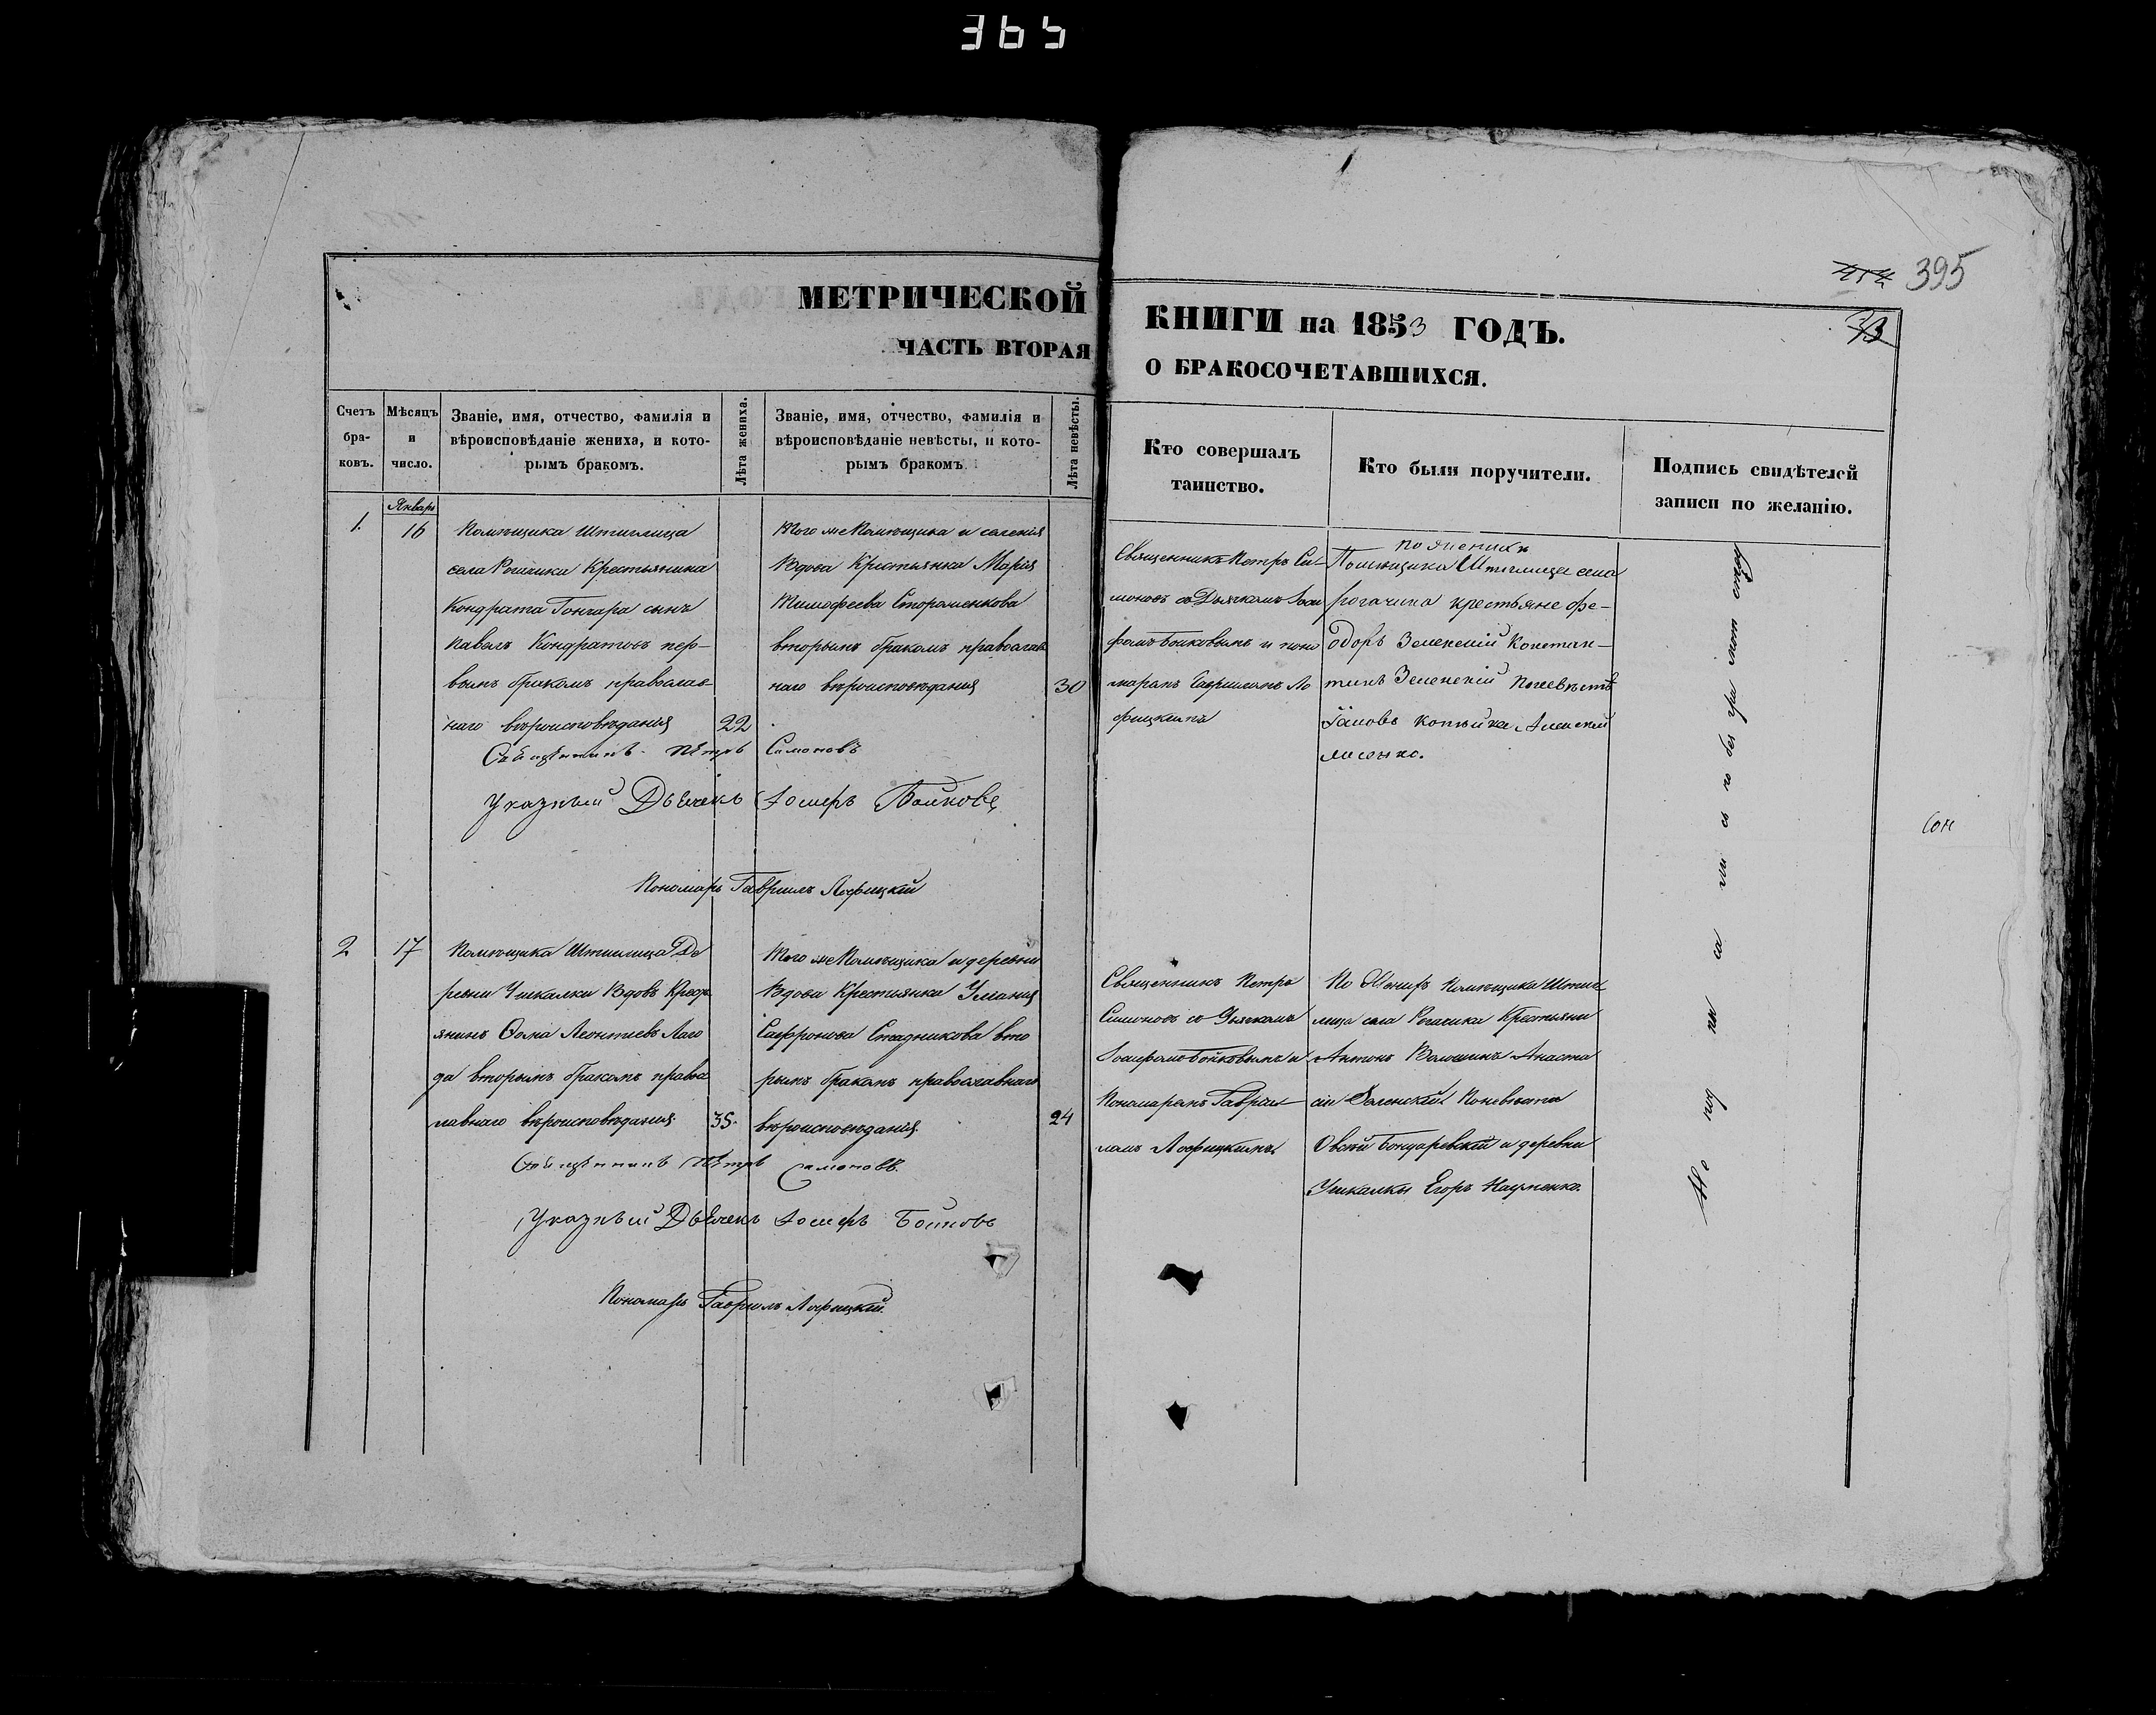 365
395
МЕТРИЧЕСКОЙ
ЧАСТЬ ВТОРАЯ
КНИГИ на 1853 ГОДЪ.
О БРАКОСОЧЕТАВШИХСЯ.
Счетъ бра- ковъ.
Мѣсяцъ и число.
Званіе, имя, отчество, фамилія и
вѣроисповѣданіе жениха, и кото-
рымъ бракомъ.
Лѣта жениха.
Званіе, имя, отчество, фамилія и
вѣроисповѣданіе невѣсты, и кото-
рымъ бракомъ.
Лѣта невѣсты.
Кто совершалъ
таинство.
Кто были поручители.
Подпись свидѣтелей
записи по желанію.
Январь
1.
16
Помѣщика Штиглица
села Крестьянина
Кондрата Гончара сынъ
Павелъ Кондратовъ пер-
вымъ бракомъ православ-
наго вѣроисповѣданія
22
Того же Помѣщика и селенія
Вдова Крестьянка Марія
Тимофеева
вторымъ бракомъ православ
наго вѣроисповѣданія
30
Священникъ Петръ Си-
моновъ съ Дьячкомъ Іоси
фомъ Бойковымъ и поно
маремъ Гавриломъ Ло
фицкимъ
по женихѣ
Помѣщика Штиглица села
рогачика крестьяне Фе-
одоръ Зеленскій Констан-
тинъ Зеленскій по невѣстѣ
Священникъ Петръ Симоновъ
Указный Дьячекъ Іосифъ Бойковъ
Пономарь Гаврилъ Лофицкій
2
17
Помѣщика Штиглица Де
ревни Ушкалки Вдовъ Крестья
янинъ Фома Леонтиевъ Лаго
да вторымъ бракомъ правос
лавнаго вѣроисповѣданія
35.
Того же Помѣщика и деревни
Вдова Крестьянка
Сафронова Стадникова вто
рымъ бракомъ православнаго
вѣроисповѣданія.
24
Священникъ Петръ
Симоновъ со Дьячкомъ
Іосифомъ Бойковымъ и
Пономаремъ Гаври
ломъ Лофицкимъ
По Женихѣ Помѣщика Штиг
лица села Рогачика Крестьяни
Антонъ Волошинъ Анаста
сій Зеленскій По невѣстѣ
Бондаревскій и деревни
Ушкалки Егоръ Науменко.
Священникъ Петръ Симоновъ.
Указный Дьячекъ Іосифъ Бойковъ
Пономарь Гаврилъ Лофицкій.